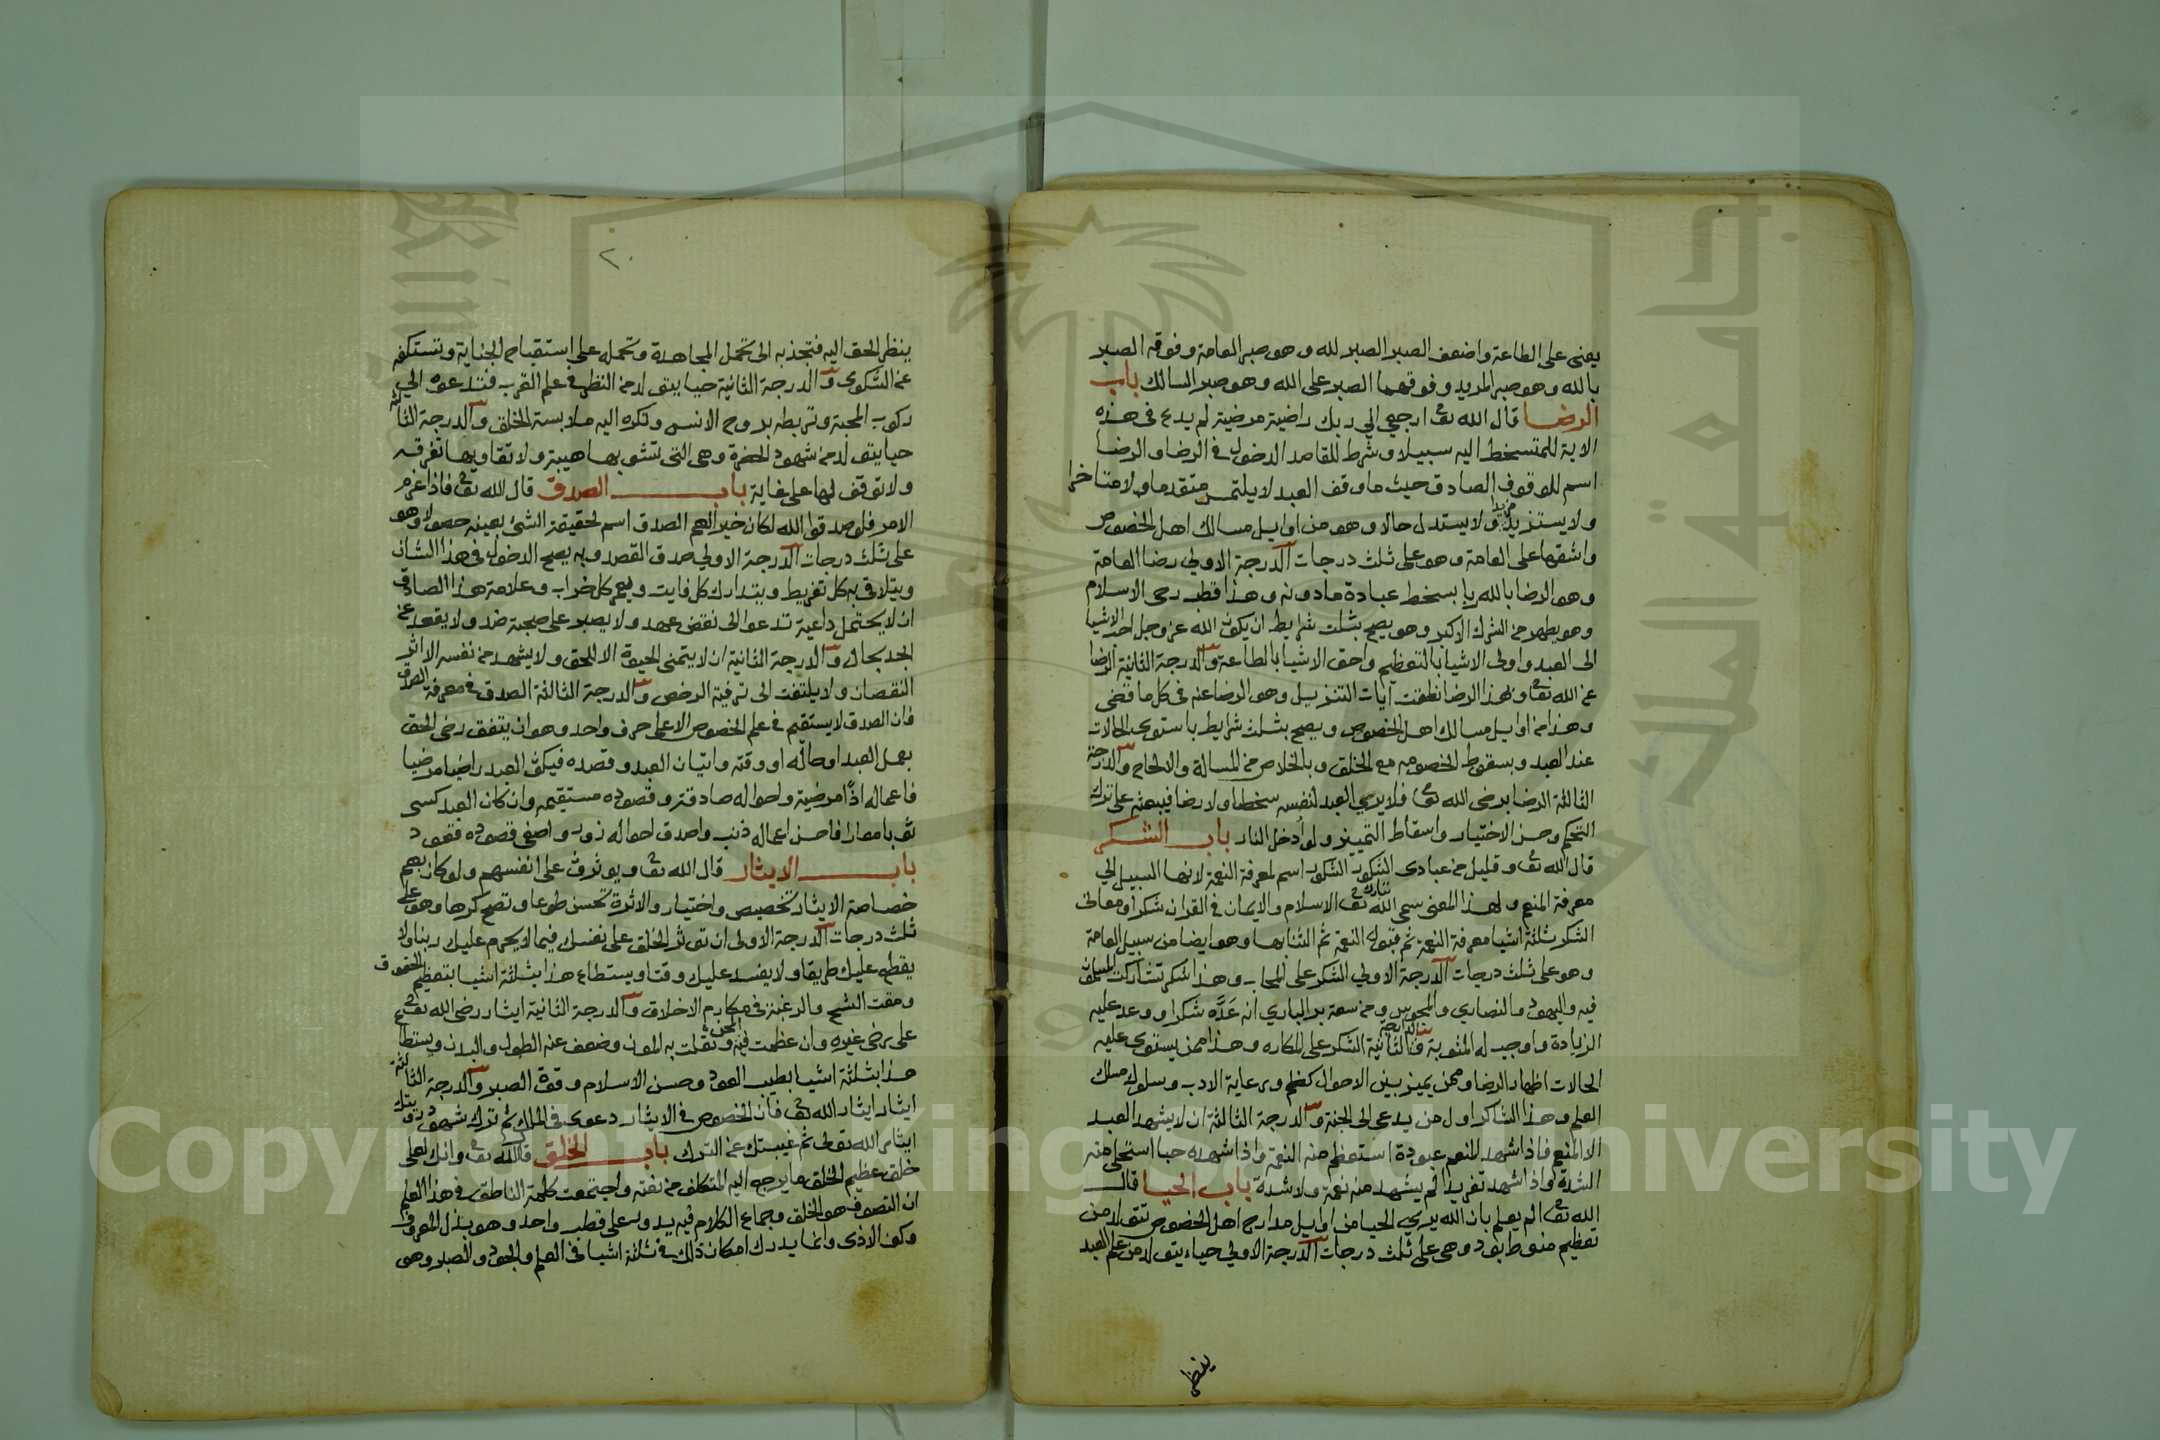 يعنى على الطاعة واضعف الصبر الصبر لله وهو صبر العامة وفوقه الصبر
بالله وهو صبر المريد وفوقهما الصبر على الله وهو صبر السالك باب
الرضا قال الله تع ارجعي الي ربك راضية مرضية لم يدع فى هذه
الاية للمتسخط اليه سبيلا وشرط للقاصد الدخول في الرضا والرضا
اسم للوقوف الصادق حيث ما وقف العبد لا يلتمس متقدما ولا متاخرا
ولا يستزيد مزيدا ولا يستبدل حالا وهو من اوايل مسالك اهل الخصوص
واشقها على العامة وهو على ثلث درجات الدرجة الاولي رضا العامة
وهو الرضا بالله ربا بسخط عبادة ما دونه وهذا قطب رحى الاسلام
وهو يطهر من الشرك الاكبر وهو يصح بثلث شرايط ان يكون الله عز وجل احب الاشيا
الى العبد واولى الاشيا بالتعظيم واحق الاشيا بالطاعة والدرجة الثانية الرضا
عن الله تع وبهذا الرضا نطقت آيات التنزيل وهو الرضا عنه في كل ما قضى
وهذا من اوايل مسالك اهل الخصوص ويصح بثلث شرايط باستوى الحالات
عند العبد وبسقوط الخصومه مع الخلق وبالخلاص من المسالة والالحاح والدرجة
الثالثة الرضا برضى الله تع فلا يرى العبد لنفسه سخطا ولا رضا فيبعثه على ترك
التحكم وحسن الاختيار واسقاط التمييز ولو أدخل النار باب الشكر
قال الله تع وقليل من عبادى الشكور الشكور اسم لمعرفة النعمة لانها السبيل الي
معرفة المنعم ولهذا المعنى سمى الله تبارك وتع الاسلام والايمان في القران شكرا ومعانى
الشكر ثلثة اشيا معرفة النعمة ثم قبول النعمة ثم الثنا بها وهو ايضا من سبيل العامة
وهو على ثلث درجات الدرجة الاولي الشكر على المحاب وهذا شكر تشاركت المسلمون
فيه واليهود والنصاري والمجوس ومن سعة بر الباري انه عَدَّه شكرا ووعد عليه
الزيادة واوجب له المثوبة والدرجة الثانية الشكر على المكاره وهذا ممن يستوى عليه
الحالات اظهار الرضا وممن يميز بين الاحوال كظم ورعاية الادب وسلوك مسلك
العلم وهذا الشاكر اول من يدعى الى الجنة والدرجة الثالثة ان لا يشهد العبد
الا المنعم فاذا شهد المنعم عبودة استعظم منه النعمة واذا شهده حبا استحلى منه
الشدة واذا شهد تفريدا لم يشهد منه نعمة ولا شدة باب الحيا قال
الله تع الم يعلم بان الله يرى الحيا من اوايل مدارج اهل الخصوص يتولد من
تعظيم منوط بود وهى على ثلث درجات الدرجة الاولي حياء يتولد من علم العبد
ينظر
٢٠
ينظر الحق اليه فتجذبه الى تحمل المجاهدة وتحمله على استقباح الجناية وتستكفه
عن الشكوى والدرجة الثانية حيا يتولد من النظر في علم القرب فتدعوه الي
ركوب المحبة وتربطه بروح الانس وتكره اليه ملابسة الخلق والدرجة الثالثة
حيا يتولد من شهود الحضرة وهى التى تشوبها هيبة ولا تقاويها تفرقه
ولا توقف لها على غاية باب الصدق قال الله تع فاذا عزم
الامر فلو صدقوا الله لكان خيرا لهم الصدق اسم لحقيقة الشئ بعينه حصولا وهو
على ثلث درجات الدرجة الاولي صدق القصد وبه يصح الدخول في هذا الشان
ويتلافى به كل تفريط ويتدارك كل فايت ويعمر كل خراب وعلامة هذا الصادق
ان لا يحتمل داعية تدعو الى نقض عهد ولا يصبر على صحبة ضد ولا يقعد عن
الجد بحال والدرجة الثانية ان لا يتمنى الحيوة الا للحق ولا يشهد من نفسه الا اثر
النقصان ولا يلتفت الى ترفيه الرخص والدرجة الثالثة الصدق في معرفة الصدق
فان الصدق لا يستقيم في علم الخصوص الا على حرف واحد وهو ان يتفق رضى الحق
بعمل العبد او حاله او وقته واتيان العبد وقصده فيكون العبد راضيا مرضيا
فاعماله اذًا مرضية واحواله صادقة وقصوده مستقيمه وان كان العبد كسى
ثوبا معارا فاحسن اعماله ذنب واصدق احواله زور واصفى قصوده قعود
باب الايثار قال الله تع ويوثرون على انفسهم ولو كان بهم
خصاصة الايثار تخصيص واختيار والاثرة تحسن طوعا وتصح كرها وهو على
ثلث درجات الدرجة الاولى ان توثر الخلق على نفسك فيما لا يحرم عليك دينا ولا
يقطع عليك طريقا ولا يفسد عليك وقتا ويستطاع هذا بثلثة اشيا بتعظيم الحقوق
ومقت الشح والرغبة في مكارم الاخلاق والدرجة الثانية ايثار رضى الله تع
على رضى غيره وان عظمت فيه المحن وثقلت به المون وضعف عنه الطول والبدن ويستطاع
هذا بثلثة اشيا بطيب العود وحسن الاسلام وقوة الصبر والدرجة الثالثة
ايثار ايثار الله تع فان الخصوص في الايثار دعوى في الملك ثم ترك شهود رويتك
ايثار الله تعالى ثم غيبتك عن الترك باب الخلق قال الله تع وانك لعلى
خلق عظيم الخلق ما يرجع اليه المتكلف من نعته واجتمعت كلمة الناطق في هذا العلم
ان التصوف هو الخلق وجماع الكلام فيه يدور على قطب واحد وهو بذل المعروف
وكف الاذى وانما يدرك امكان ذلك في ثلثة اشيا في العلم والجود والصبر وهى
Copyright © King Saud University
جامعة الملك